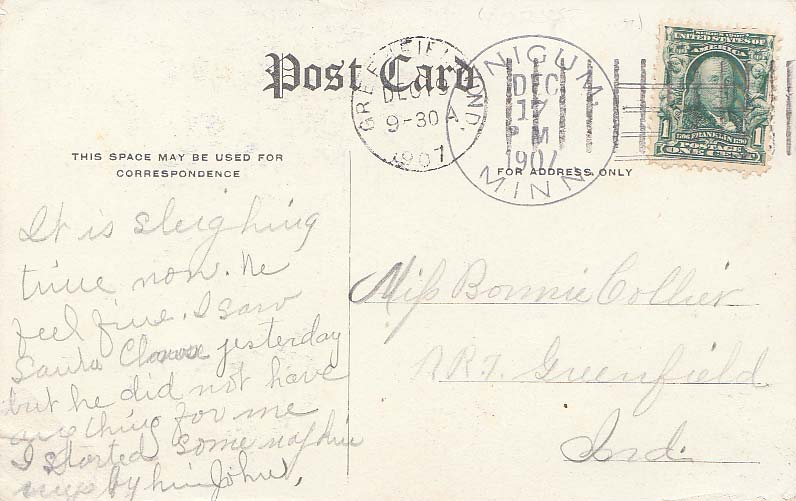 Post Card
GREENFIELD IND.
DEC 19
9-30 A
1907
NIGUM,
DEC
17
P M
1907
MINN
SERIES 1902
UNITED STATES OF
AMERICA
1 1706 FRANKLIN 1790 1
POSTAGE
ONE CENT
THIS SPACE MAY BE USED FOR
CORRESPONDENCE
FOR ADDRESS ONLY
It is sleighing
time now. We
feel fine. I saw
Santa Claus yesterday
but he did not have
anything for me
I started some napkin
rings by him John,
Miss Bonnie Collier
Greenfield
Ind.